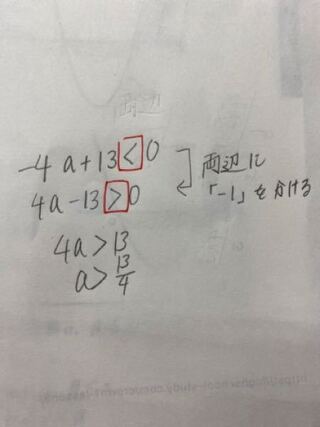 -4a+13<0
4a-13>0
両辺に
「-1」をかける
4a>13
a>13/4